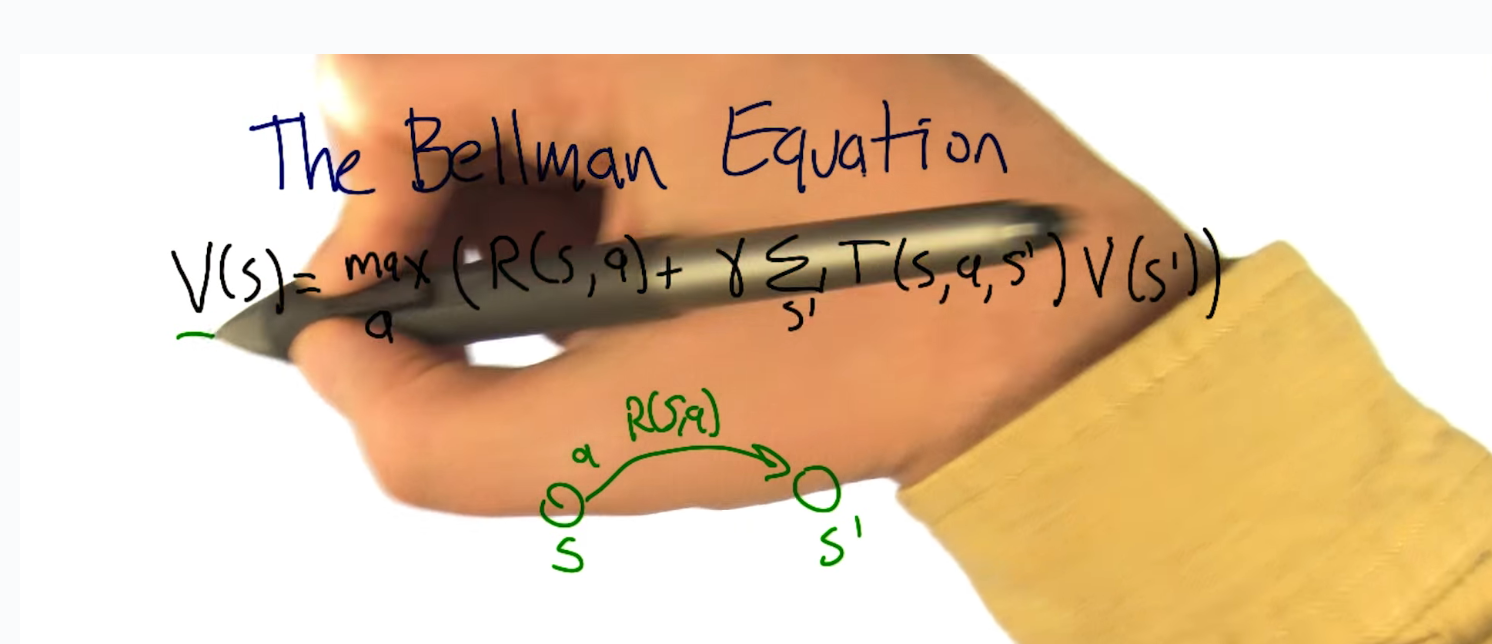 The Bellman Equation
V(s) = max ( R(s,a) + γ Σ T(s,a,s') V(s') )
a s'
R(s,a)
a
s s'